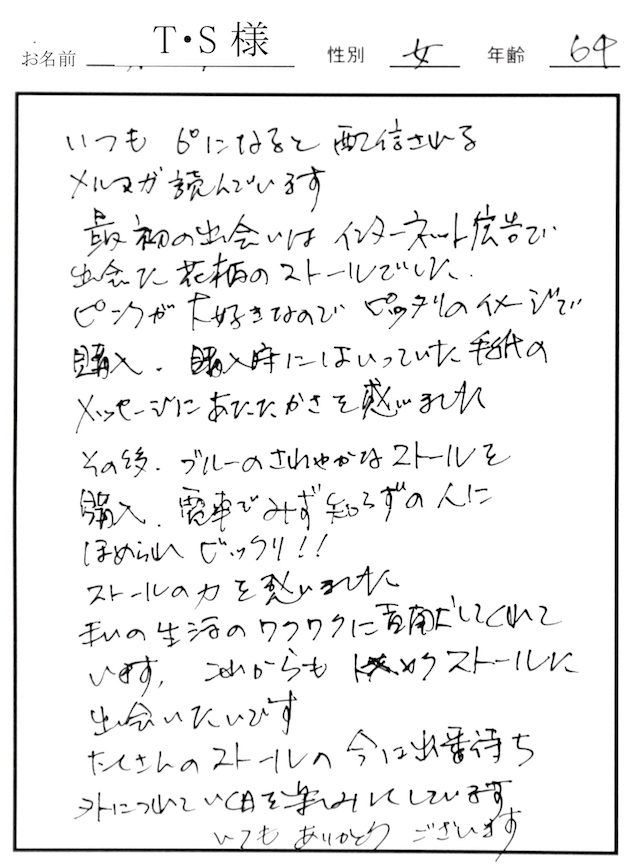 お名前 T・S 様 性別 女 年齢 64
いつも 6°になると 配信される
メルマガ 読んでいます
最初の出会いは インターネット広告で
出会った 花柄のストールでした.
ピンクが 大好きなので ピッタリのイメージで
購入. 購入時にはいっていた 手紙の
メッセージに あたたかさを感じました
その後. ブルーのさわやかなストールを
購入. 電車で みず知らずの人に
ほめられ ビックリ!!
ストールの力を感じました
私の生活のワクワクに貢献してくれて
います. これからも トキメクストールに
出会いたいです
たくさんのストールの 今は出番待ち
外につれていく日を楽しみにしています
いつも ありがとう ございます